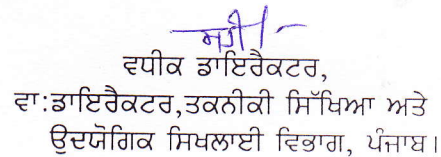 ਸਹੀ/-
ਵਧੀਕ ਡਾਇਰੈਕਟਰ,
ਵਾ:ਡਾਇਰੈਕਟਰ,ਤਕਨੀਕੀ ਸਿੱਖਿਆ ਅਤੇ
ਉਦਯੋਗਿਕ ਸਿਖਲਾਈ ਵਿਭਾਗ, ਪੰਜਾਬ।